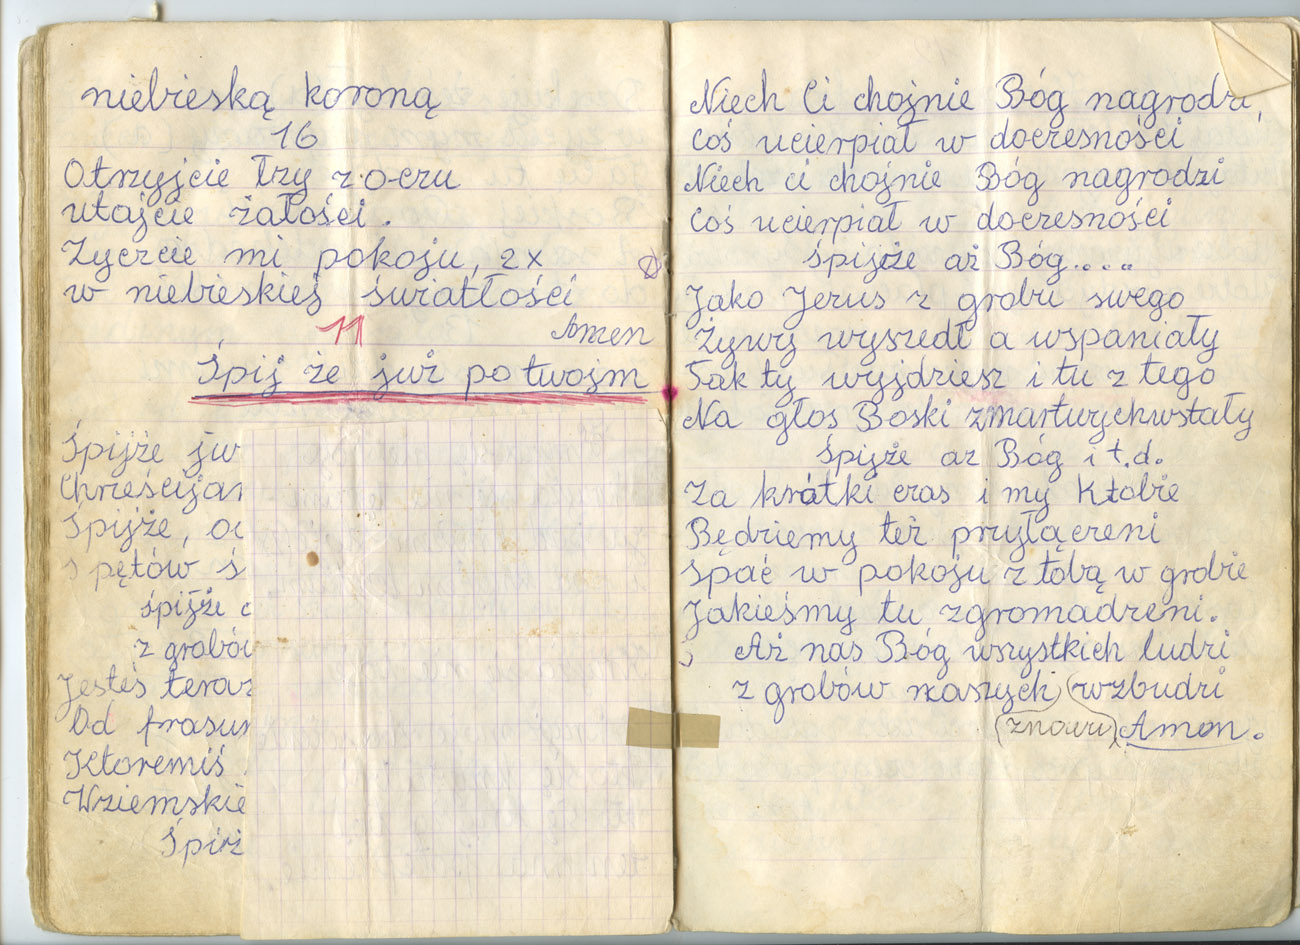 niebieską koroną
16
Otrzyjcie łzy z oczu
utajcie żałości.
Życzcie mi pokoju, 2x
w niebieskiej światłości
Amen
11
Śpij że już po twojm
Śpijże już
Chrześcijan
Śpijże, od
s pętów ś
śpijże a
z grobów
Jesteś teraz
Od frasun
Ktoremiś
Wziemskie
Śpiż
Niech Ci chojnie Bóg nagrodzi,
coś ucierpiał w doczesności
Niech ci chojnie Bóg nagrodzi
coś ucierpiał w doczesności
śpijże aż Bóg....
Jako Jezus z grobu swego
Żywy wyszedł a wspaniały
Tak ty wyjdziesz i tu z tego
Na głos Boski zmartwychwstały
śpijże aż Bóg i t.d.
Za krótki czas i my k tobie
Będziemy też przyłączeni
Spać w pokoju z tobą w grobie
Jakieśmy tu zgromadzeni.
Aż nas Bóg wszystkich ludzi
z grobów naszych wzbudzi
(znowu) Amen.